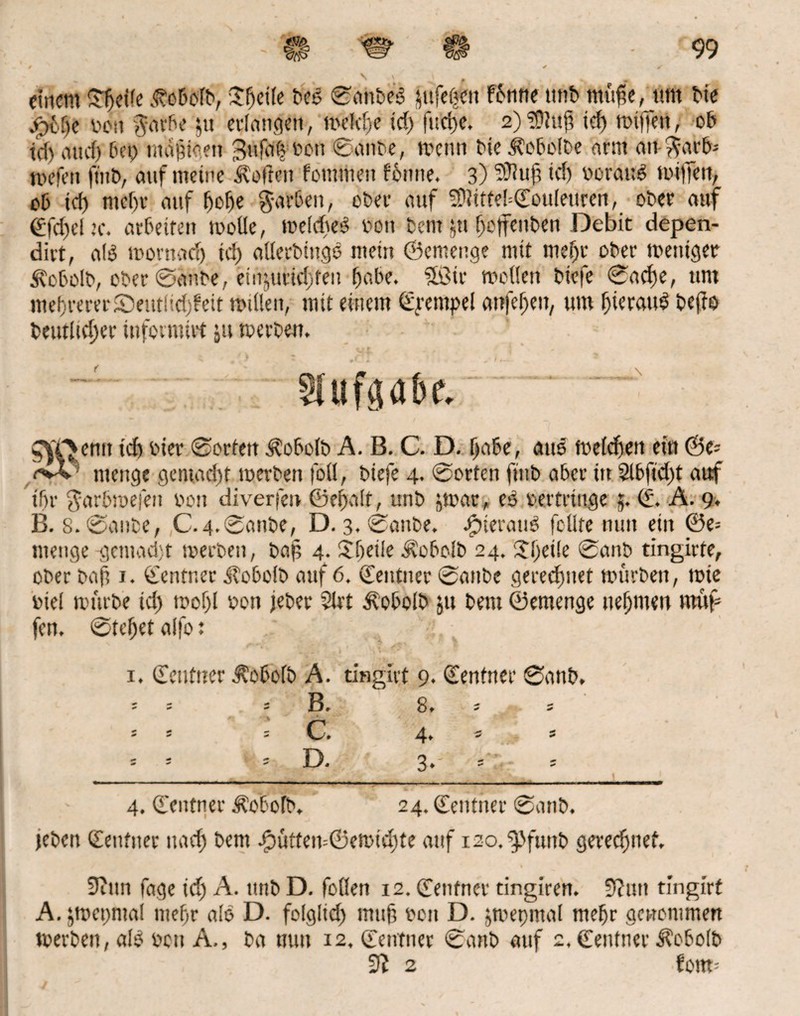 99
einem Theile Kobold, Theile des Sandes zusetzen könne und müße, um die
Höhe von Farbe zu erlangen, welche ich suche. 2) Muß ich wissen, ob
ich auch bey mäßigen Zusatz von Sande, wenn die Kobolde arm an Farb-
wesen sind, auf meine Kosten kommen könne. 3) Muß ich voraus wissen,
ob ich mehr auf hohe Farben, oder auf Mittel-Couleuren, oder auf
Eschel ꝛc. arbeiten wolle, welches von dem zu hoffenden Debit depen-
dirt, als wornach ich allerdings mein Gemenge mit mehr oder weniger
Kobold, oder Sande, einzurichten habe. Wir wollen diese Sache, um
mehrerer Deutlichkeit willen, mit einem Exempel ansehen, um hieraus desto
deutlicher informirt zu werden.
Aufgabe.
Wenn ich vier Sorten Kobold A. B. C. D. habe, aus welchen ein Ge-
menge gemacht werden soll, diese 4. Sorten sind aber in Absicht auf
ihr Farbwesen von diversen Gehalt, und zwar, es vertringe z. E. A. 9.
B. 8. Sande, C. 4. Sande, D. 3. Sande. Hieraus sollte nun ein Ge-
menge gemacht werden, daß 4. Theile Kobold 24. Theile Sand tingirte,
oder daß 1. Centner Kobold auf 6. Centner Sande gerechnet würden, wie
viel würde ich wohl von jeder Art Kobold zu dem Gemenge nehmen müs-
sen. Stehet also:
1. Centner Kobold A. tingirt 9. Centner Sand.
= = = B. 8. = =
= = = C. 4. = =
= = = D. 3. = =
4. Centner Kobold. 24. Centner Sand.
jeden Centner nach dem Hütten-Gewichte auf 120. Pfund gerechnet.
Nun sage ich A. und D. sollen 12. Centner tingiren. Nun tingirt
A. zweymal mehr als D. folglich muß von D. zweymal mehr genommen
werden, als von A., da nun 12. Centner Sand auf 2. Centner Kobold
N 2 kom-